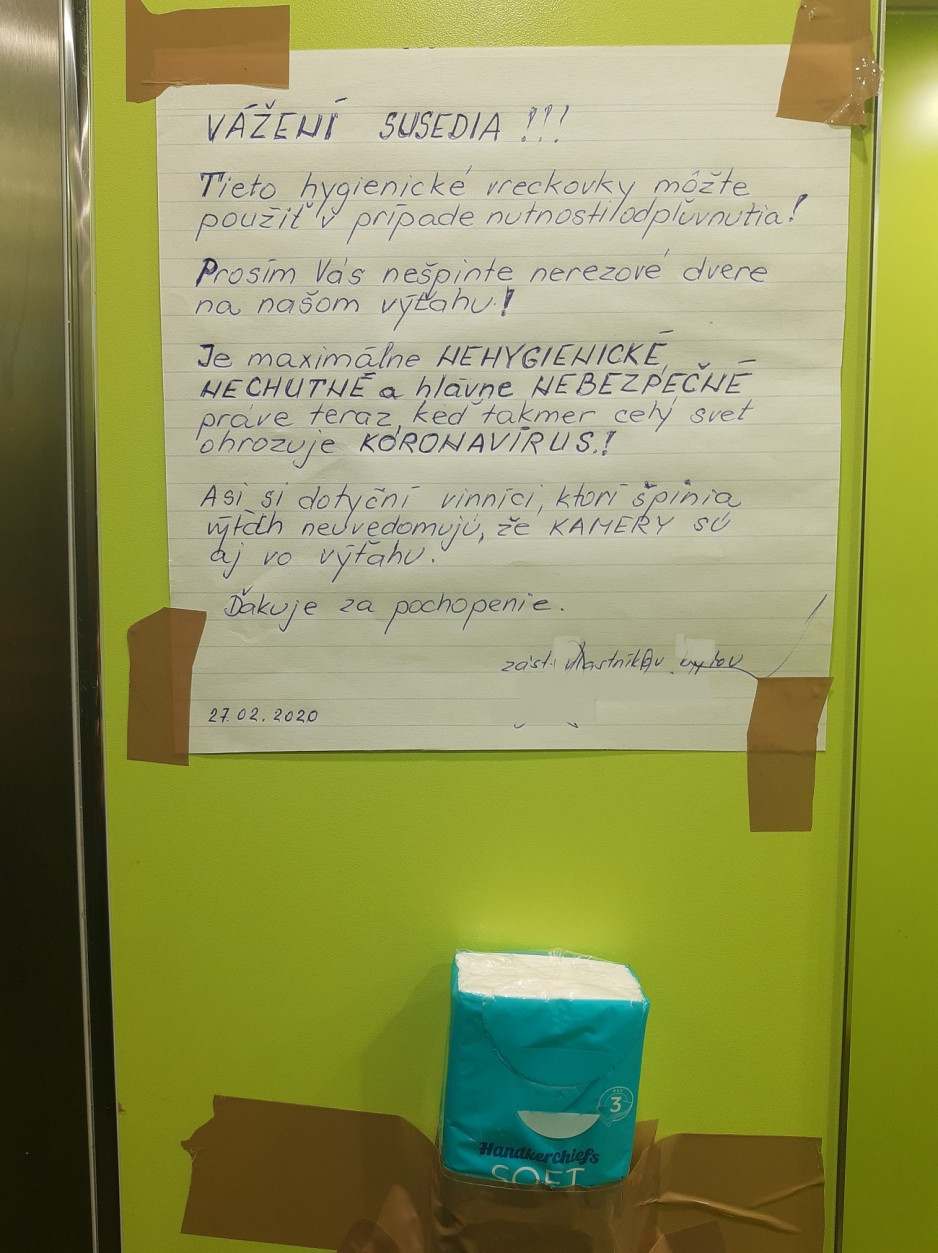 VÁŽENÍ SUSEDIA !!!
Tieto hygienické vreckovky môžte
použiť v prípade nutnosti odpľuvnutia!
Prosím Vás nešpinte nerezové dvere
na našom výťahu!
Je maximálne NEHYGIENICKÉ,
NECHUTNÉ a hlavne NEBEZPEČNÉ
práve teraz, keď takmer celý svet
ohrozuje KORONAVÍRUS!
Asi si dotyční vinníci, ktorí špinia
výťah neuvedomujú, že KAMERY SÚ
aj vo výťahu.
Ďakuje za pochopenie.
zást. vlastníkov bytov
27.02.2020
3
Handkerchiefs
SOFT